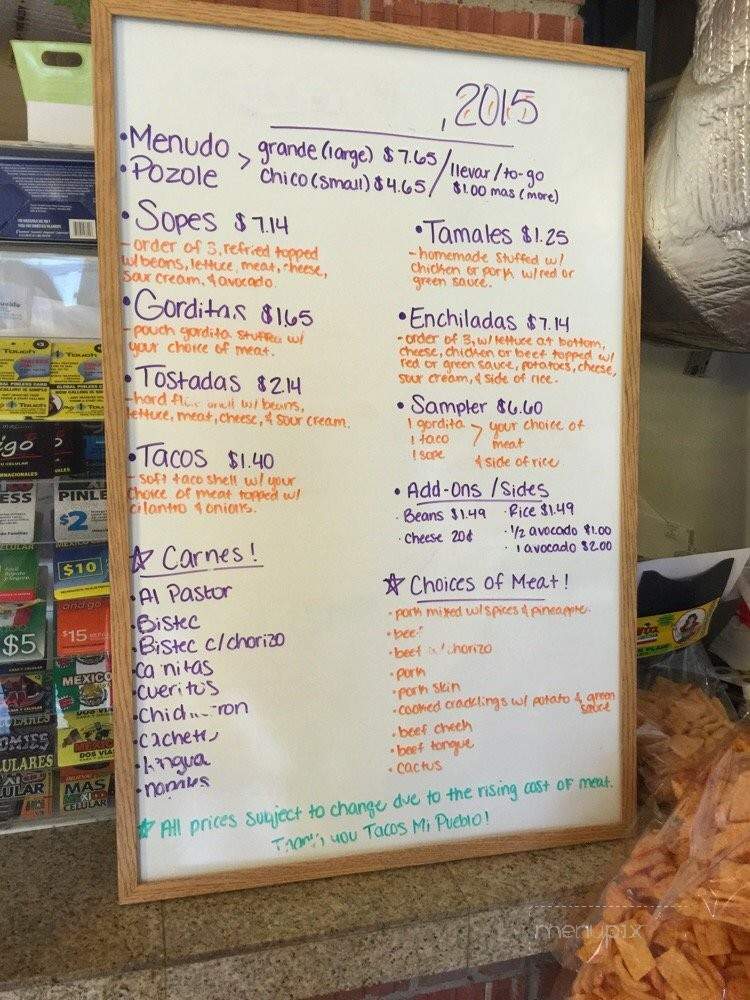 , 2015
•Menudo > grande (large) $7.65 / llevar/to-go
•Pozole chico (small) $4.65 / $1.00 mas (more)
•Sopes $7.14
-order of 3, refried topped
w/beans, lettuce, meat, cheese,
sour cream, & avocado.
•Gorditas $1.65
-pouch gordita stuffed w/
your choice of meat.
•Tostadas $2.14
-hard shell w/ beans,
lettuce, meat, cheese, & sour cream.
•Tacos $1.40
-soft taco shell w/ your
choice of meat topped w/
cilantro & onions.
☆ Carnes!
•Al Pastor
•Bistec
•Bistec c/chorizo
•Ca nitas
•cueritos
•Chich ron
•Cachete
•Lengua
•nopales
•Tamales $1.25
-homemade stuffed w/
chicken or pork w/red or
green sauce.
•Enchiladas $7.14
-order of 3, w/ lettuce at bottom,
cheese, chicken or beef topped w/
red or green sauce, potatoes, cheese,
sour cream, & side of rice.
•Sampler $6.60
1 gordita > your choice of
1 taco meat
1 sope & side of rice
•Add-Ons/Sides
·Beans $1.49 ·Rice $1.49
·Cheese 20¢ ·1/2 avocado $1.00
·1 avocado $2.00
☆ Choices of Meat!
•pork mixed w/spices & pineapple.
•beef
•beef w/chorizo
•pork
•pork skin
•cooked cracklings w/ potato & green
sauce
•beef cheek
•beef tongue
•cactus
☆ All prices subject to change due to the rising cost of meat.
Thank you Tacos Mi Pueblo!
PINLE
$2
$10
$15
$5
MEXICO
MAS
MEXICO
CELULAR
menupix